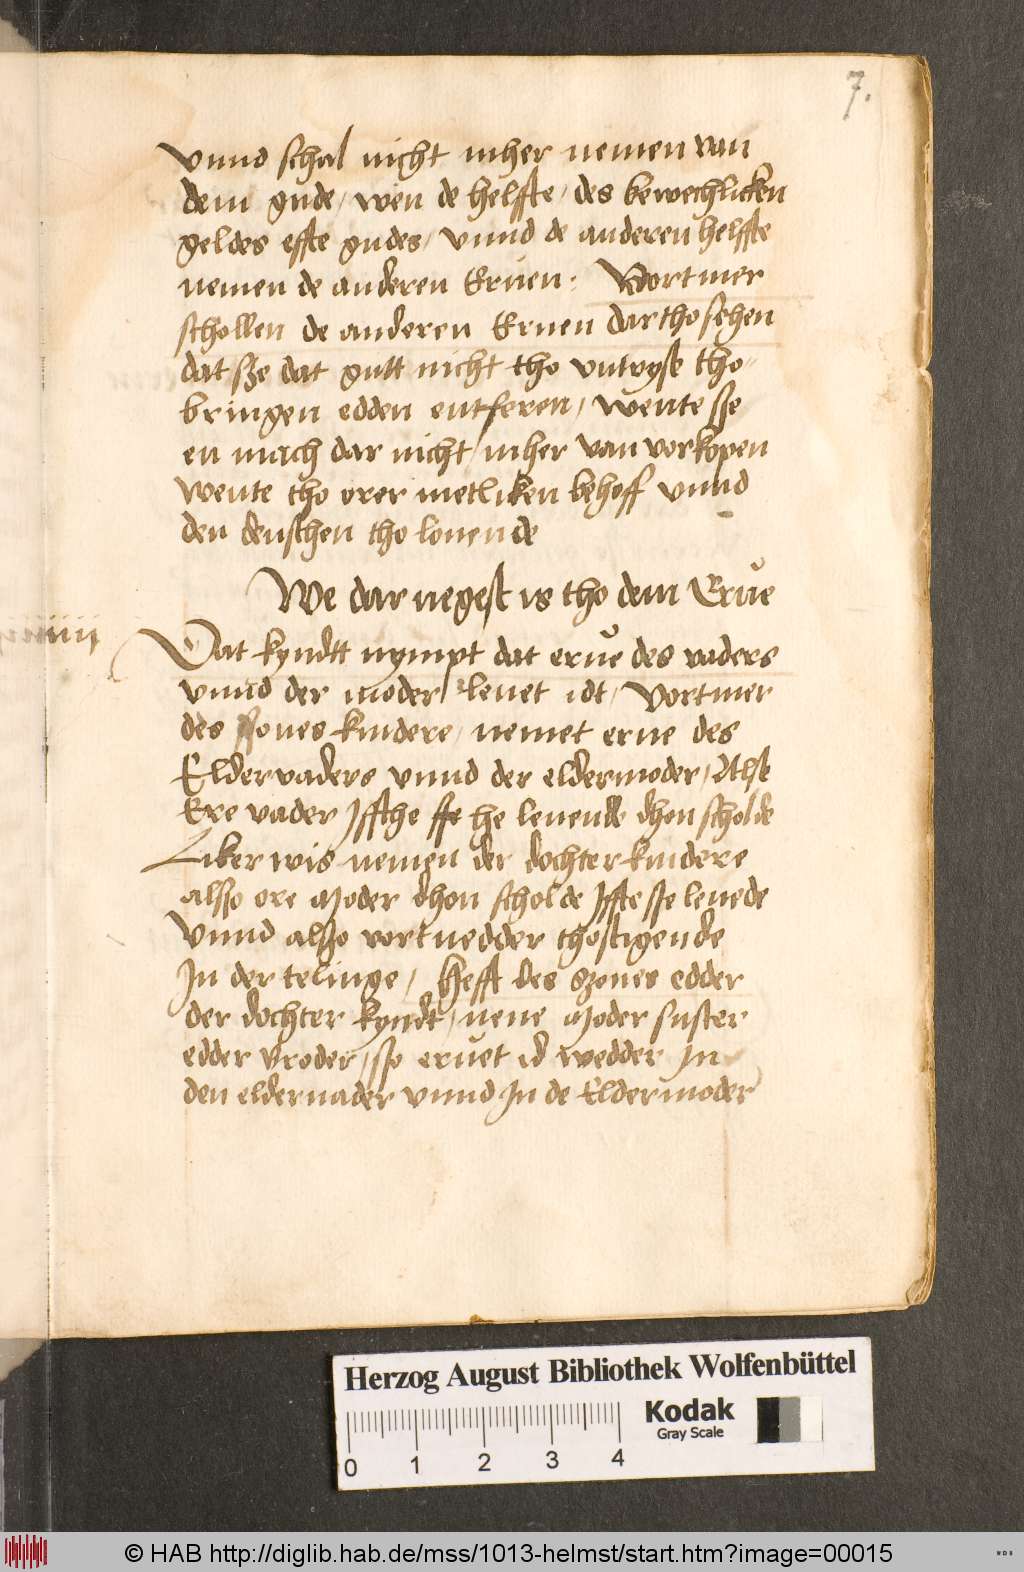 7.
Vnnd schal nicht mher nemen van
dem gude, wen de helffte, des bewechlicken
geldes effte gudes, Vnnd de anderen helffte
nemen de anderen Eruen: Vortmer
schollen de anderen Eruen dar tho sehen
dat sze dat gutt nicht tho vntyst tho-
bringen edder entferen, Wente sse
en mach dar nicht mher van vorkopen
Wente tho orer metliken behoff vnnd
den denschen tho lonende
We dar negest is tho dem Erue
iiiii
Dat kyndtt nympt dat erue des vaders
vnnd der moder leuet idt, Vortmer
des sones kindere, nemet erue des
Eldervaders vnnd der eldermoder, Alse
Ere vader Jffthe he leuende dhon scholde
Liker wis nemen der dochter kindere
alsso ore Moder dhon scholde Jffte sse leuede
Vnnd alsso vort nedder thostigende
In der telinge, Hefft des szones edder
der dochter kyndt, nene Moder suster
edder Broder, sso eruet id wedder In
den elderuader vnnd In de Eldermoder
Herzog August Bibliothek Wolfenbüttel
Kodak
Gray Scale
0 1 2 3 4
© HAB http://diglib.hab.de/mss/1013-helmst/start.htm?image=00015